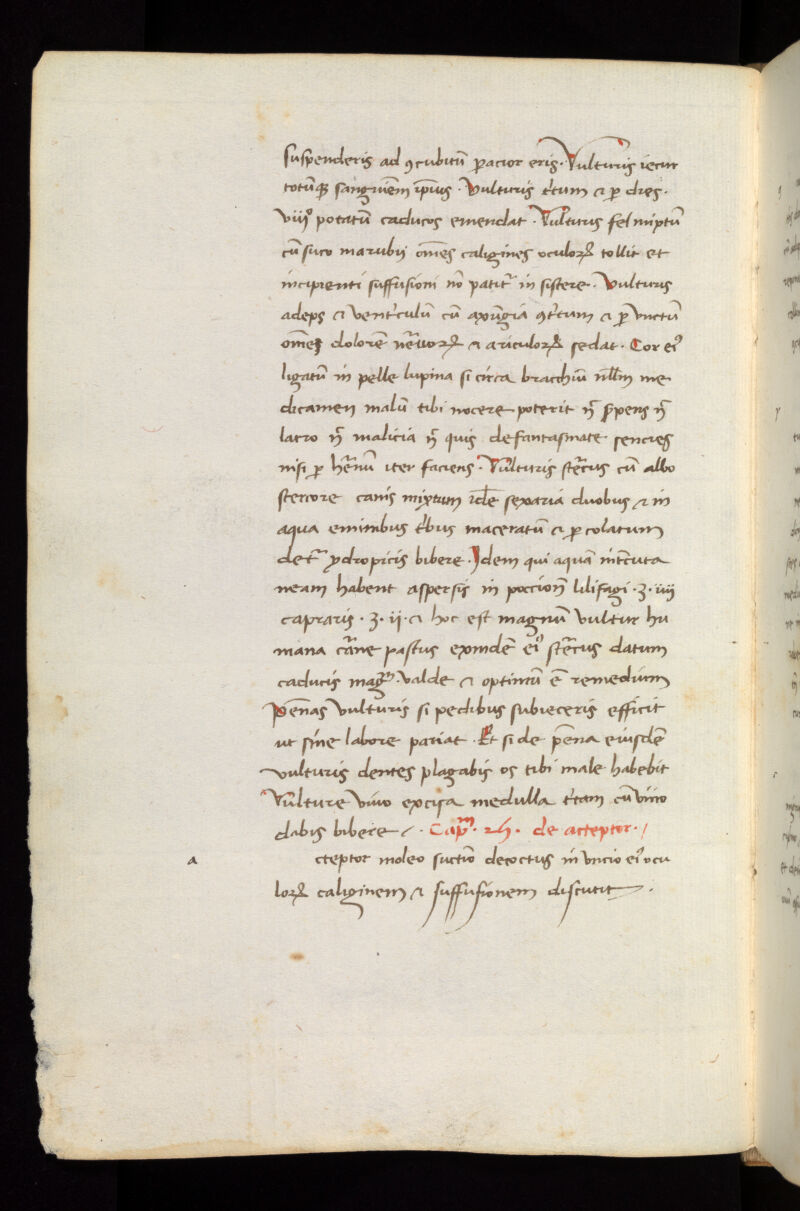 suspenderis ad ꝯcubitū ꝑacior eris · Vulturis iecur
totūqꝫ sangui͞em ip̄ius · Vulturis t͛tum ⁊ ꝑ dies ·
viiij° potatū caducos emendat · Vulturis fel mixtū
cū suco marubij om̄es caligines oculoꝝ tollit et
incipienti suffusioni nō patit᷑ in sistere · Vulturis
adeps ⁊ vent͛culū cū axūgia ꝯt͛tum ⁊ ꝑ vnctū
om̄es dolorē neruoꝝ ⁊ articuloꝝ sedat · Cor eiꝰ
ligatū in pelle lupina si circa bracchiū nll̄m me
dicamen malū tibi nocere poterit n̄ serpens n̄
latro n̄ malicia n̄ quis de fantasmate sencies
nisi ꝑ h͛enū iter faciens · Vulturis st͛cus cū albo
stercore canis mixtum id͞e sexaria duobus ⁊ in
aqua eminibus t͛bus maceratū ⁊ ꝑ colatum
det᷑ ydropicis bibere · Idem qui aquā int͛cuta
neam habent aspersis in poccion̄ lilifagi · ʒ · iiij
capparis · ʒ · ij · ⁊ hoc est magnū vultur hu
mana carne pastus exindē eiꝰ st͛cus datum
caducis mag᷑ valde ⁊ optimū ē remedium
Pēnas vulturis si pedibus subieceris efficit
ut sine labore pariat · Et si de pēna eiusdē
vulturis dentes plagabis os tibi male habebit
Vulture vivo excisa medulla t͛tam cū vino
dabis bibere · Capᵐ · 2h · de acceptor · /
a cteptor moleo suctīo decoctus in vncio eiꝰ ocu
loꝝ caliginem ⁊ suffusionem discutit ·